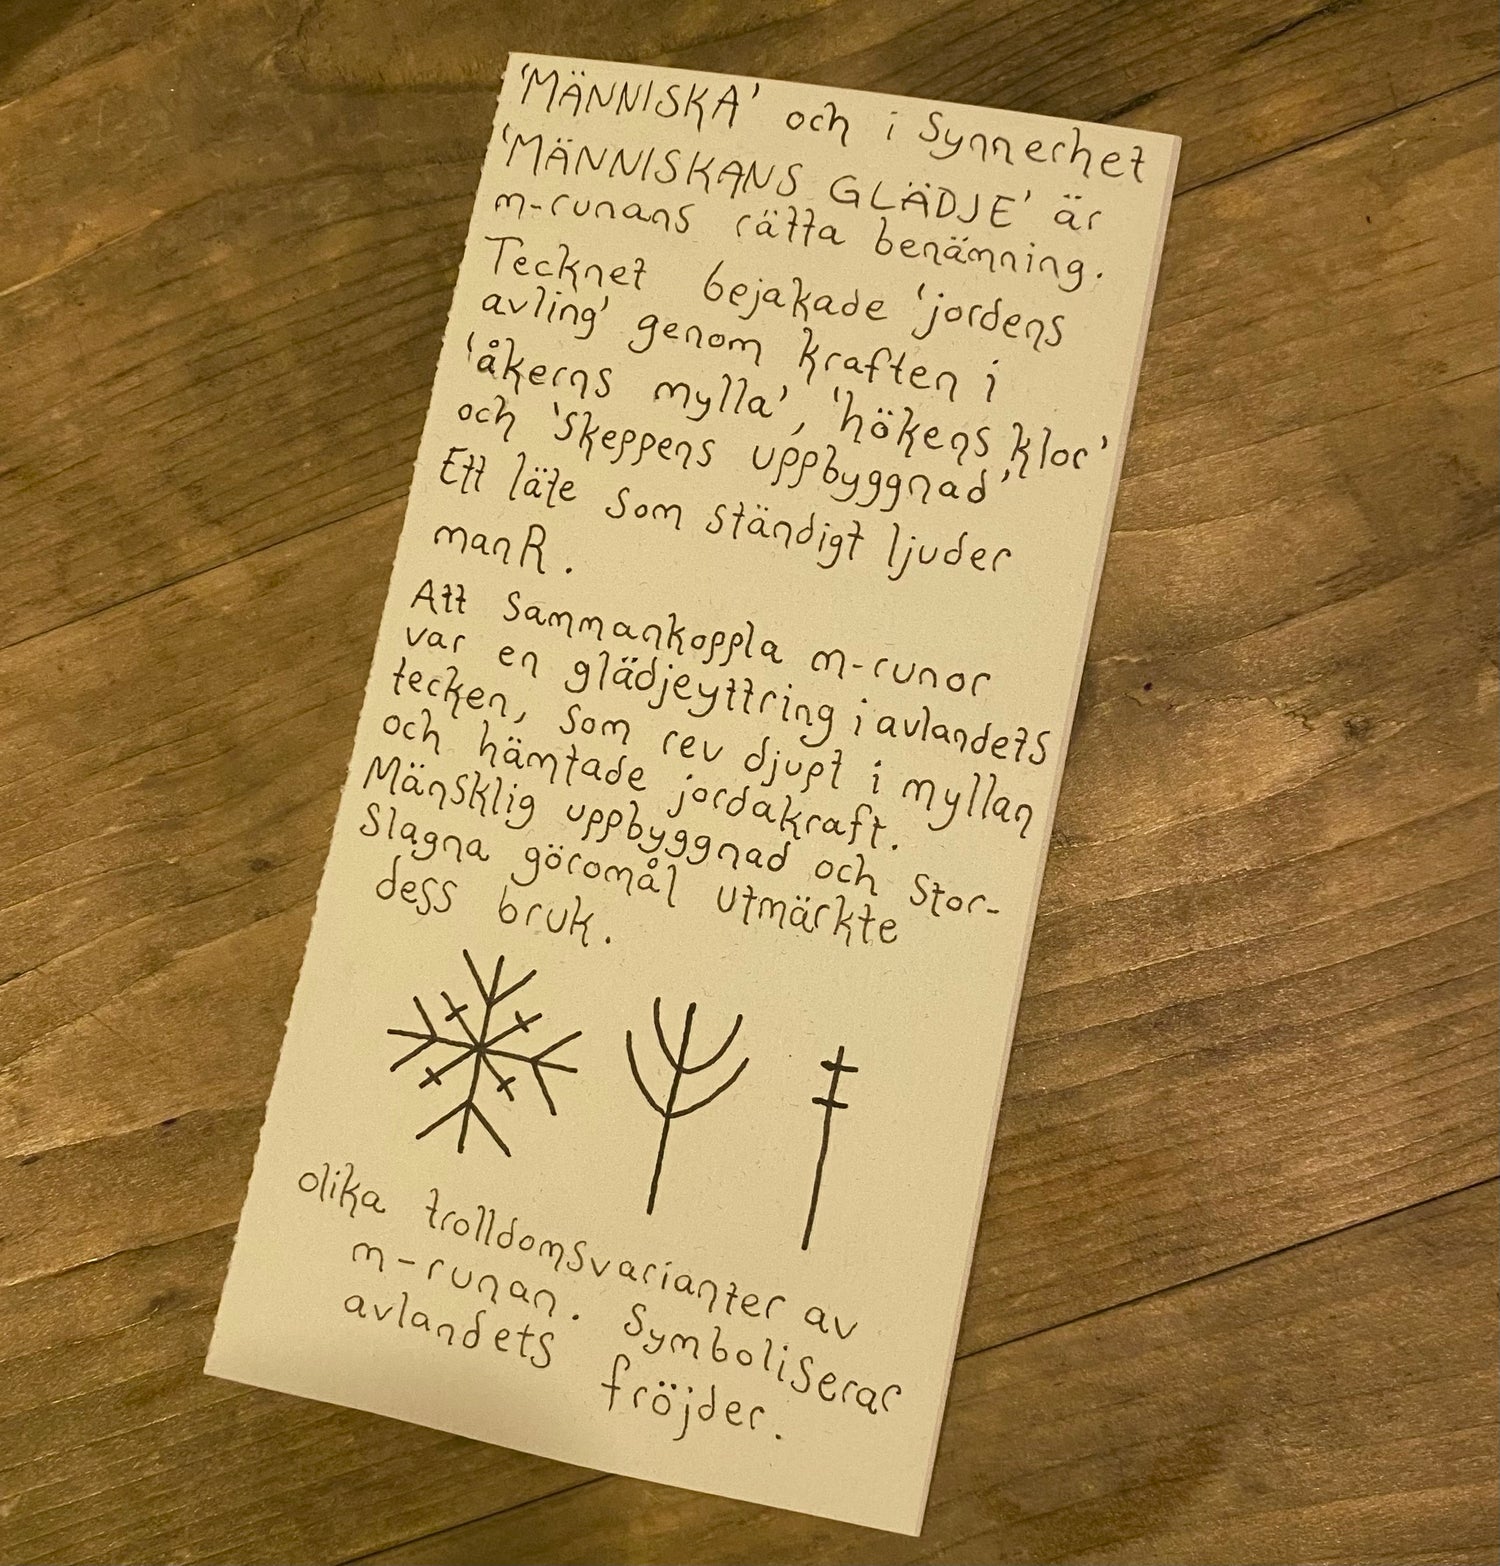 'MÄNNISKA' och i synnerhet
'MÄNNISKANS GLÄDJE' är
m-runans rätta benämning.
Tecknet bejakade 'jordens
avling' genom kraften i
'åkerns mylla', 'hökens klor'
och 'skeppens uppbyggnad'
Ett läte som ständigt ljuder
manR.
Att sammankoppla m-runor
var en glädjeyttring i avlandets
tecken, som rev djupt i myllan
och hämtade jordakraft.
Mänsklig uppbyggnad och stor-
slagna göromål utmärkte
dess bruk.
olika trolldomsvarianter av
m-runan. Symboliserar
avlandets fröjder.